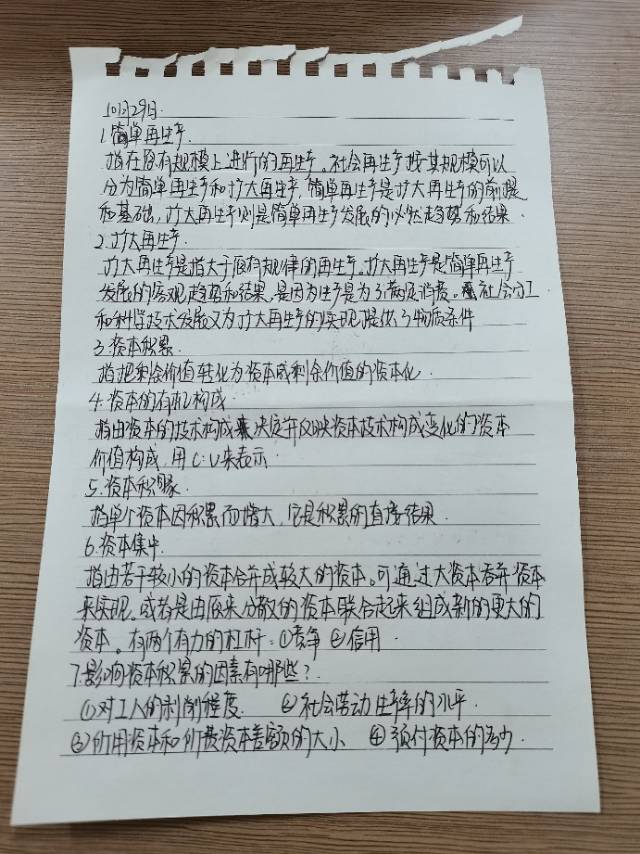 10月29日.
1.简单再生产.
指在原有规模上进行的再生产。社会再生产按其规模可以
分为简单再生产和扩大再生产,简单再生产是扩大再生产的前提
和基础,扩大再生产则是简单再生产发展的必然趋势和结果.
2.扩大再生产.
扩大再生产是指大于原有规律的再生产。扩大再生产是简单再生产
发展的客观趋势和结果,是因为生产是为了满足消费。社会分工
和科学技术发展又为扩大再生产的实现提供了物质条件
3.资本积累
指把剩余价值转化为资本或剩余价值的资本化.
4.资本的有机构成.
指由资本的技术构成决定并反映资本技术构成变化的资本
价值构成,用C:V来表示.
5.资本积聚.
指单个资本因积累而增大,它是积累的直接结果.
6.资本集中.
指由若干较小的资本合并成较大的资本。可通过大资本吞并资本
来实现,或者是由原来分散的资本联合起来组成新的更大的
资本。有两个有力的杠杆:①竞争 ②信用.
7.影响资本积累的因素有哪些?
①对工人的剥削程度. ②社会劳动生产率的水平.
③所用资本和所费资本差额的大小 ④预付资本的多少.